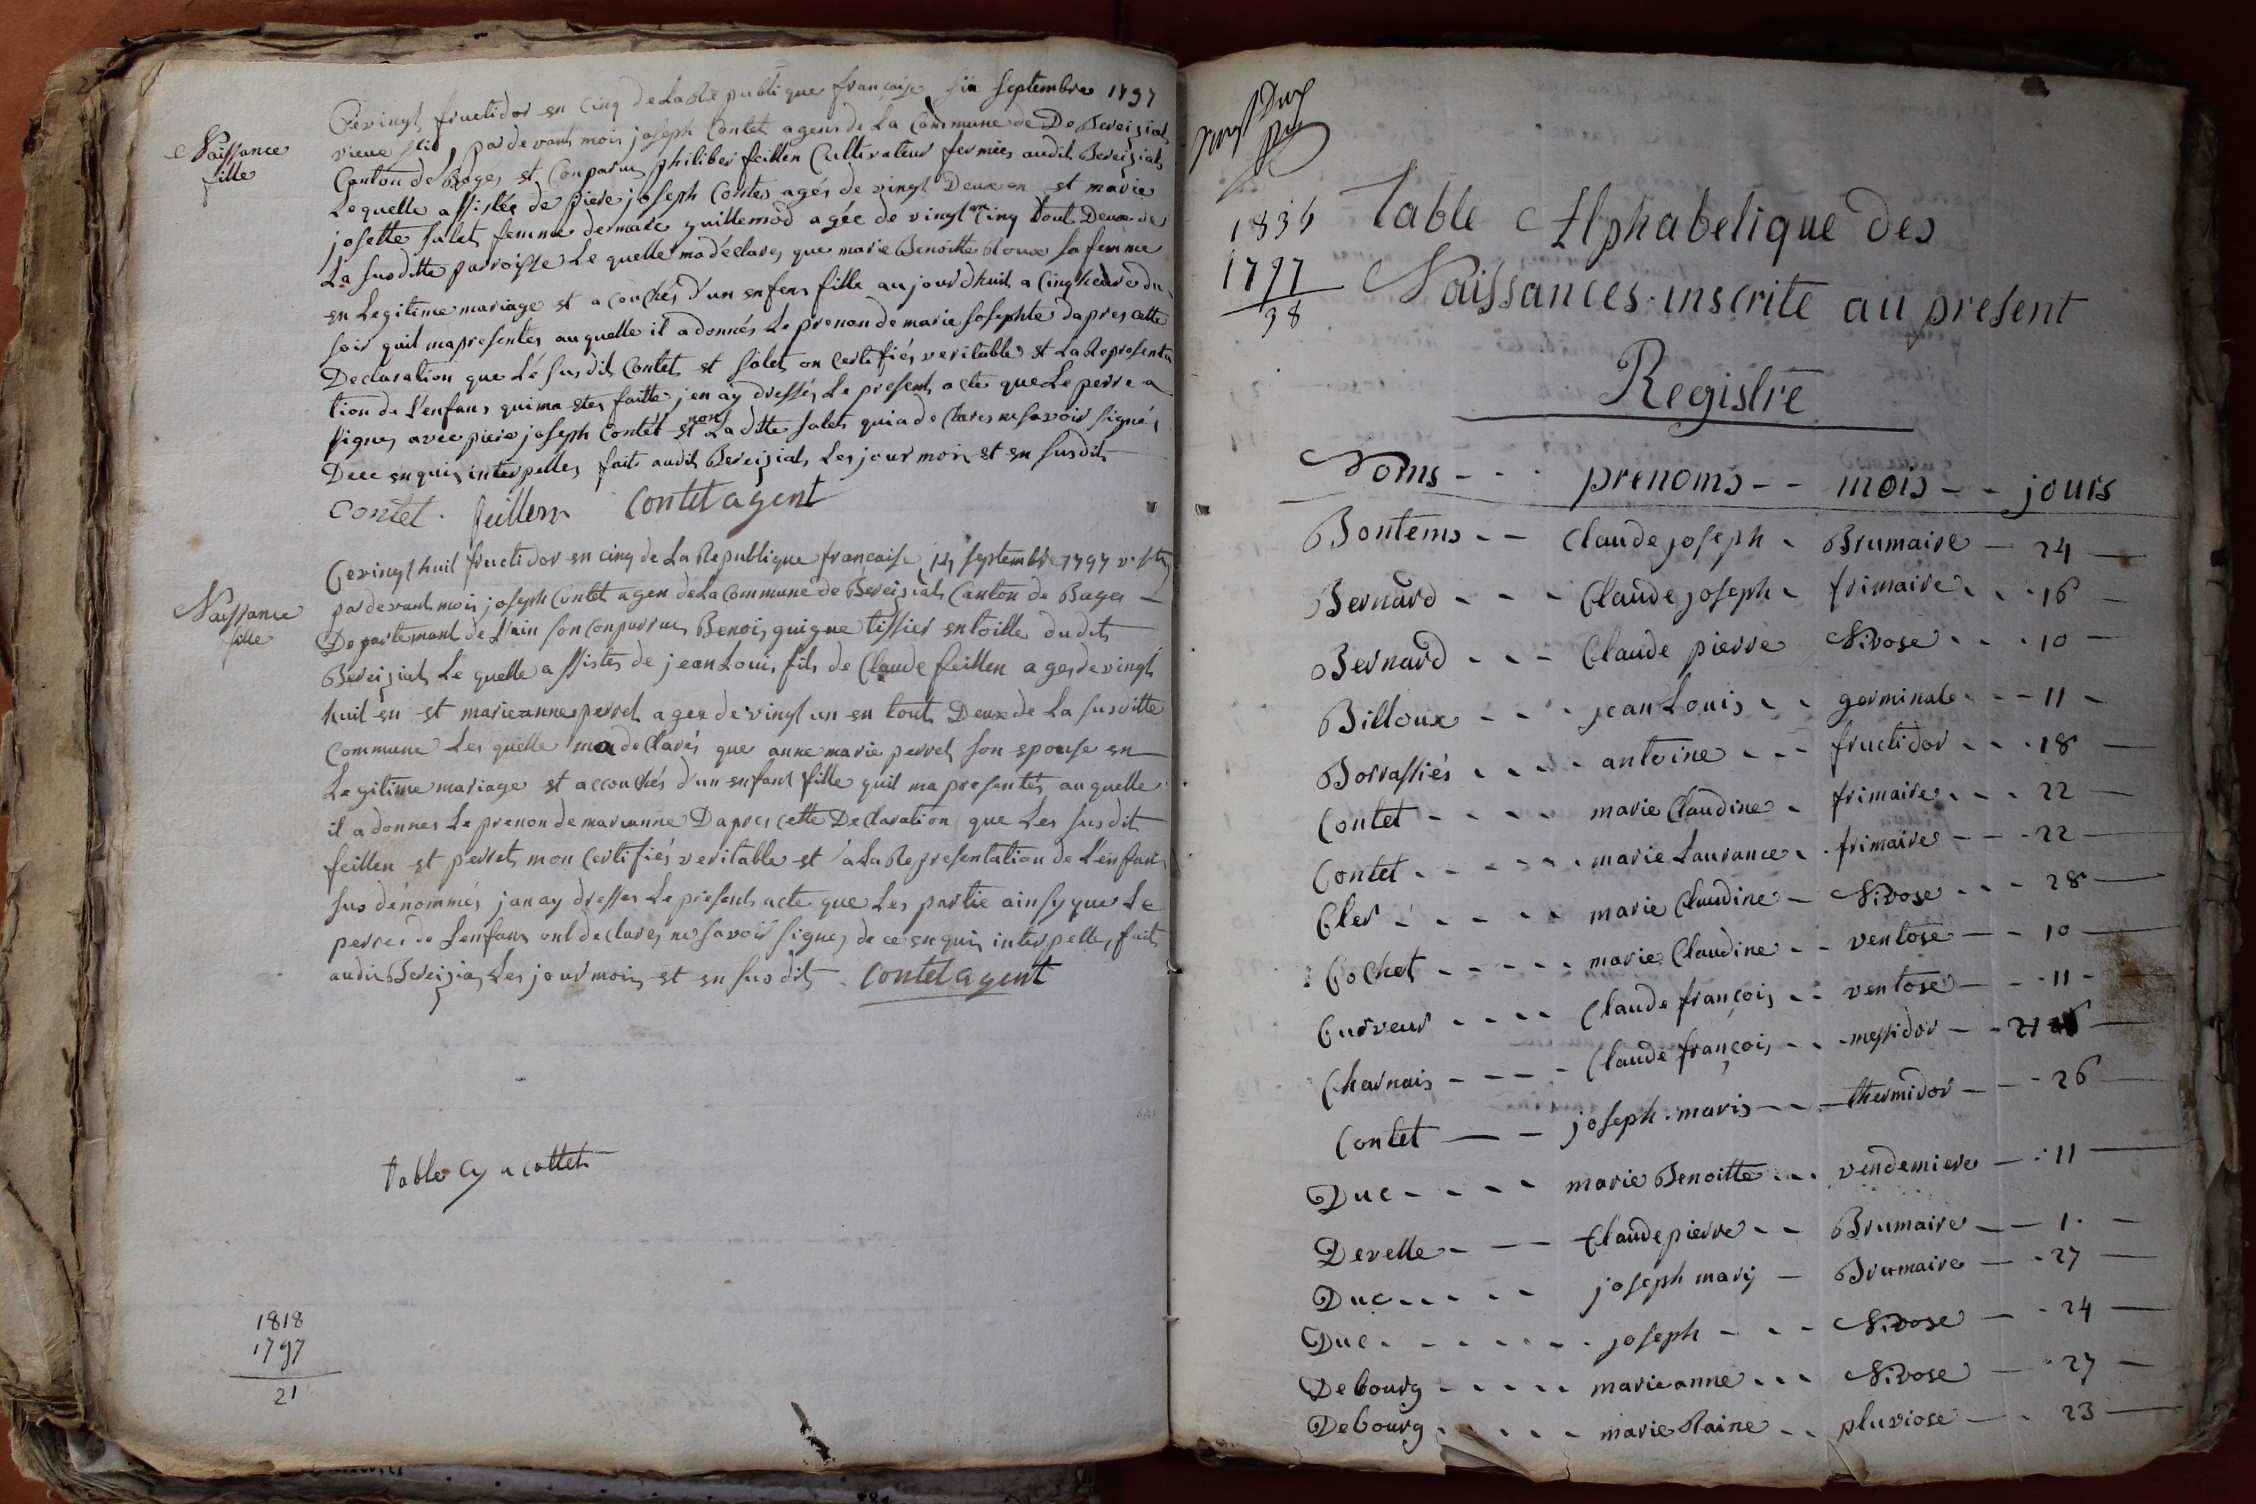 Naissance
fille
Ce vingt fructidor en cinq de la Republique française six septembre 1797
vieux stil, par devant mois joseph Contet agens de La Commune de De Bereiziat
Canton de Bages est Conparus philiber feillen Cultivateur fermiés audit Bereiziat
Lequelle assistée de piere joseph Contes agés de vingt Deux en et marie
josette salet femme de marc guillemod agée de vingt cinq en tout Deux de
La susditte parroisse Le quelle ma déclarez que marie Benoitte Roux sa femme
en Legitime mariage et acouchés d'un enfens fille aujourdhuit a Cinq heure du
soir quil ma presentés auquelle il a donnés Le prenon de marie Josephte dapres cette
Declaration que Lé susdit Contet et salet on certifiés veritable et La Represanta
tion de L'enfans qui ma etes faitte jen ay dressés Le présent acte que Le perre a
signes avec piere joseph Contet et non La ditte salet qui a de Clares ne savoir signés
Dece enquis interpelles fait audit Bereiziat Les jour mois et en susdit
Contet. feillen Contet agent
Naissance
fille
Ce vingt huit fructidor en cinq de La Republique francaise 14 septembre 1797 v. sti
par devant mois joseph Contet agen de La Commune de Bereiziat Canton de Bages
Departemant de L'ain son conparrus Benois guigue tissier en toille dudit
Bereiziat Le quelle assistés de jean Louis fils de Claude feillen a ges de vingt
huit en et marie anne perret agee de vingt un en tout Deux de La susditte
Commune Les quelle ma de Clarés que anne marie perret son epouse en
Legitime mariage et accouchés d'un enfant fille quil ma presentés auquelle
il a donnes Le prenon de marianne Dapres cette Declaration que Les susdit
feillen et perret mon Certifiés veritable et a La Representation de L'enfans
sus dénommés jan ay dresses Le present acte que Les partie ainsy que Le
perre de Lenfans ont declares ne savoir signes de ce enquis interpelle, fait
audit Bereizia Les jour mois et en susdit. Contet agent
table Cy a cottet
1818
1797
21
1835
1797
38
Table Alphabetique des
Naissances inscrite au present
Registre
Noms - - - prenoms - - mois - - jours
Bontems - - Claude joseph - Brumaire - 24
Bernard - - - Claude joseph - frimaire - - - 16
Bernard - - - Claude pierre Nivose - - - 10
Billoux - - - jean Louis - - germinale - - - 11
Borrassiés - - - - antoine - - - fructidor - - - 18
Contet - - - - marie Claudine - frimaire - - - 22
Contet - - - - - marie Laurance - frimaire - - - 22
Cler - - - - - marie Claudine - Nivose - - - 28
Cochet - - - - - marie Claudine - - ventose - - 10
Curveur - - - - Claude françois - - ventose - - - 11
Charnais - - - - Claude françois - - messidor - - 21
Contet - - joseph maris - - thermidor - - - 26
Duc - - - - marie Benoitte - - - vendemiere - - 11
Develle - - - Claude pierre - - Brumaire - - 1
Duc - - - - - joseph mary - Brumaire - - 27
Duc - - - - - - joseph - - - Nivose - - 24
Debourg - - - - - marie anne - - - Nivose - - 27
Debourg - - - - - marie Raine - - pluviose - - 23